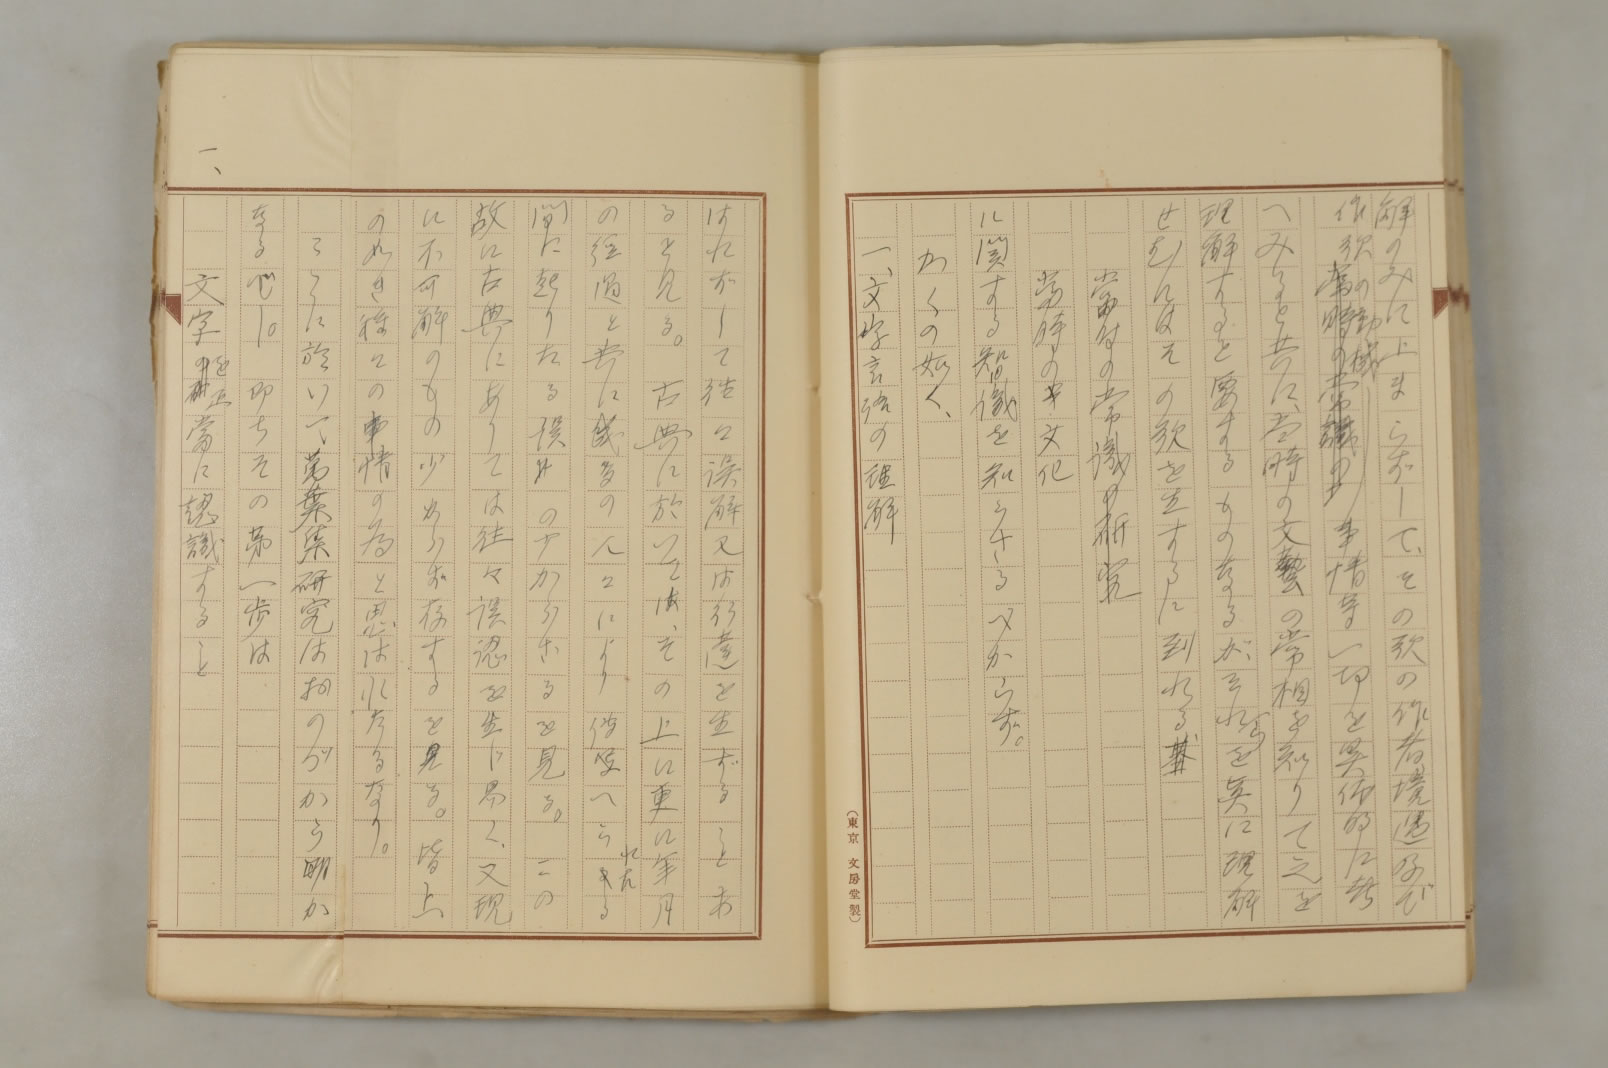 解のみに止まらずして、その歌の作者境遇及び
作歌の動機 当時の常識の 事情等一切を具体的に考
へみると共に、当時の文藝の常相を知りて之を
理解するを要するものなるが、それらを真に理解
せむにはその歌を生ずるに到れる
当時の常識の研究
当時の文化
に関する知識を知らざるべからず。
かくの如く、
一、文字言語の理解
(東京 文房堂製)
はれずして往々誤解又は行違を生ずることあ
るを見る。古典に於いては、その上に更に年月
の経過と共に幾多の人々により伝へられたる
間に起りたる誤の少からざるを見る。この
故に古典にありては往々誤認を生じ易く、又現
に不可解のもの少からず存するを見る。皆上
の如き種々の事情の為と思はれたるなり。
ここに於いて萬葉集研究はおのづから明か
なるべし。即ちその第一歩は
一、
文字を正当に認識すること